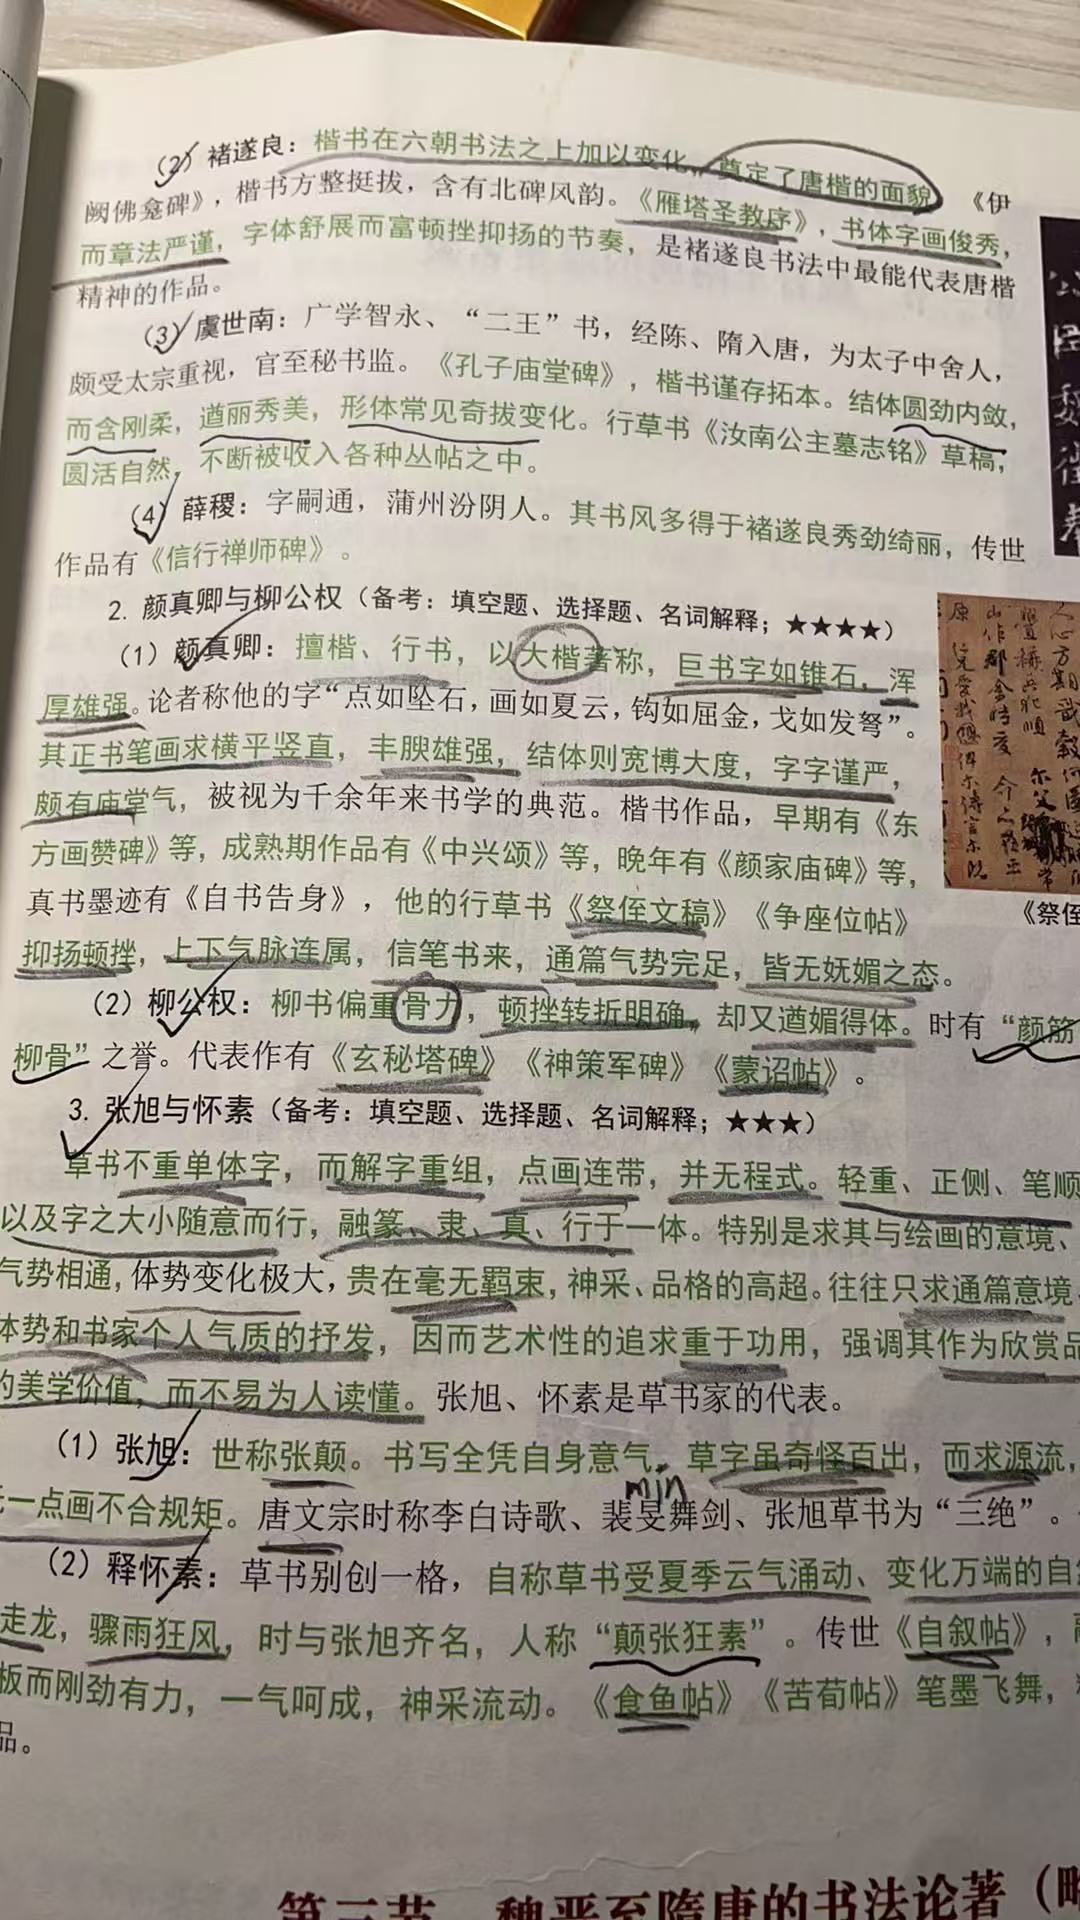 （2）褚遂良：楷书在六朝书法之上加以变化，奠定了唐楷的面貌 《伊
阙佛龛碑》，楷书方整挺拔，含有北碑风韵。《雁塔圣教序》，书体字画俊秀，
而章法严谨，字体舒展而富顿挫抑扬的节奏，是褚遂良书法中最能代表唐楷
精神的作品。
（3）虞世南：广学智永、“二王”书，经陈、隋入唐，为太子中舍人，
颇受太宗重视，官至秘书监。《孔子庙堂碑》，楷书谨存拓本。结体圆劲内敛，
而含刚柔，遒丽秀美，形体常见奇拔变化。行草书《汝南公主墓志铭》草稿，
圆活自然，不断被收入各种丛帖之中。
（4）薛稷：字嗣通，蒲州汾阴人。其书风多得于褚遂良秀劲绮丽，传世
作品有《信行禅师碑》。
2. 颜真卿与柳公权（备考：填空题、选择题、名词解释；★★★★）
（1）颜真卿：擅楷、行书，以大楷著称，巨书字如锥石，浑
厚雄强。论者称他的字“点如坠石，画如夏云，钩如屈金，戈如发弩”。
其正书笔画求横平竖直，丰腴雄强，结体则宽博大度，字字谨严，
颇有庙堂气，被视为千余年来书学的典范。楷书作品，早期有《东
方画赞碑》等，成熟期作品有《中兴颂》等，晚年有《颜家庙碑》等，
真书墨迹有《自书告身》，他的行草书《祭侄文稿》《争座位帖》
抑扬顿挫，上下气脉连属，信笔书来，通篇气势完足，皆无妩媚之态。
《祭侄
（2）柳公权：柳书偏重骨力，顿挫转折明确，却又遒媚得体。时有“颜筋
柳骨”之誉。代表作有《玄秘塔碑》《神策军碑》《蒙诏帖》。
3. 张旭与怀素（备考：填空题、选择题、名词解释；★★★）
草书不重单体字，而解字重组，点画连带，并无程式。轻重、正侧、笔顺
以及字之大小随意而行，融篆、隶、真、行于一体。特别是求其与绘画的意境、
气势相通，体势变化极大，贵在毫无羁束，神采、品格的高超。往往只求通篇意境、
体势和书家个人气质的抒发，因而艺术性的追求重于功用，强调其作为欣赏品
的美学价值，而不易为人读懂。张旭、怀素是草书家的代表。
（1）张旭：世称张颠。书写全凭自身意气，草字虽奇怪百出，而求源流，
无一点画不合规矩。唐文宗时称李白诗歌、裴旻舞剑、张旭草书为“三绝”。
min
（2）释怀素：草书别创一格，自称草书受夏季云气涌动、变化万端的自
走龙，骤雨狂风，时与张旭齐名，人称“颠张狂素”。传世《自叙帖》，
板而刚劲有力，一气呵成，神采流动。《食鱼帖》《苦荀帖》笔墨飞舞，
品。
第三节 魏晋至隋唐的书法论著（略